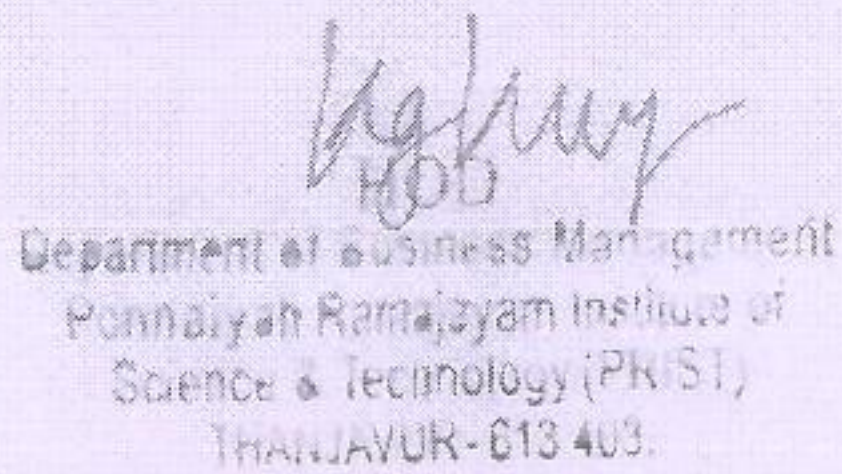 HOD
Department of Business Management
Ponnaiyah Ramajayam Institute of
Science & Technology (PRIST)
THANJAVUR - 613 403.